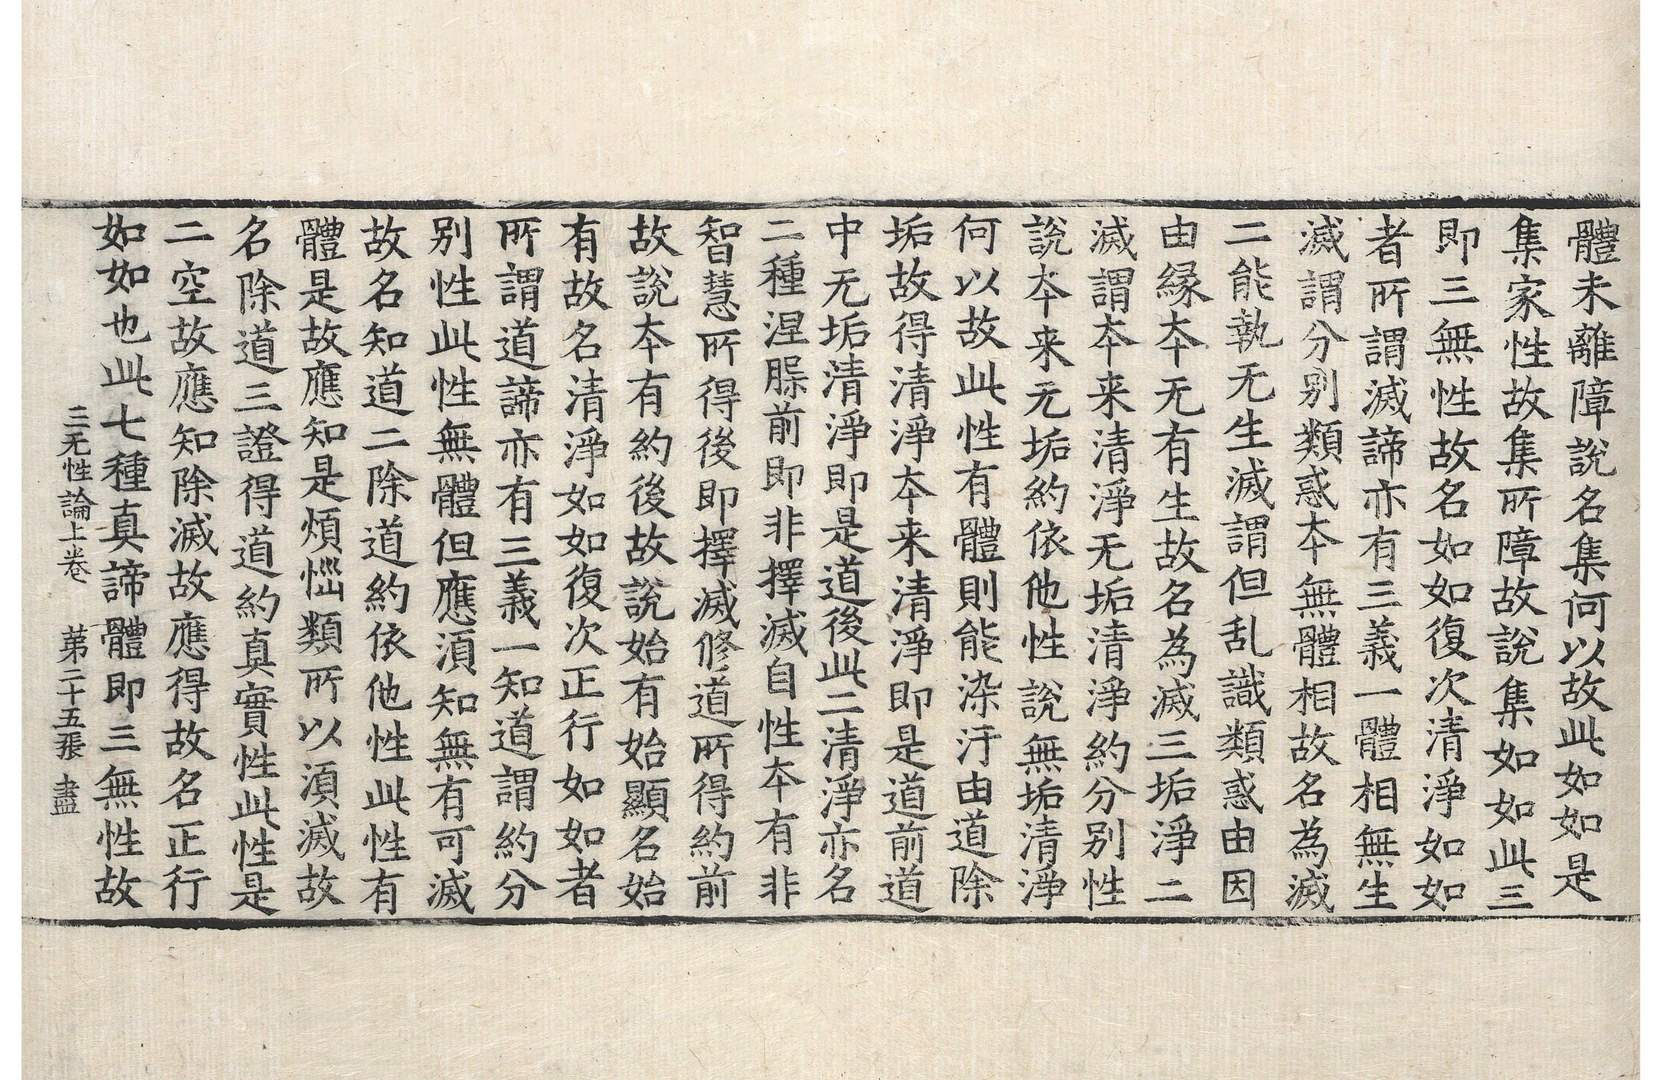 體未離障說名集何以故此如如是
集家性故集所障故說集如如此三
即三無性故名如如復次清淨如如
者所謂滅諦亦有三義一體相無生
滅謂分別類惑夲無體相故名為滅
二能執无生滅謂但乱識類惑由因
由縁夲无有生故名為滅三垢淨二
滅謂夲来清淨无垢清淨約分別性
說夲来无垢約依他性說無垢清淨
何以故此性有體則能染汙由道除
垢故得清淨夲来清淨即是道前道
中无垢清淨即是道後此二清淨亦名
二種涅槃前即非擇滅自性夲有非
智慧所得後即擇滅修道所得約前
故說夲有約後故說始有始顯名始
有故名清淨如如復次正行如如者
所謂道諦亦有三義一知道謂約分
別性此性無體但應湏知無有可滅
故名知道二除道約依他性此性有
體是故應知是煩惱類所以湏滅故
名除道三證得道約真實性此性是
二空故應知除滅故應得故名正行
如如也此七種真諦體即三無性故
三无性論上卷 苐二十五張 盡